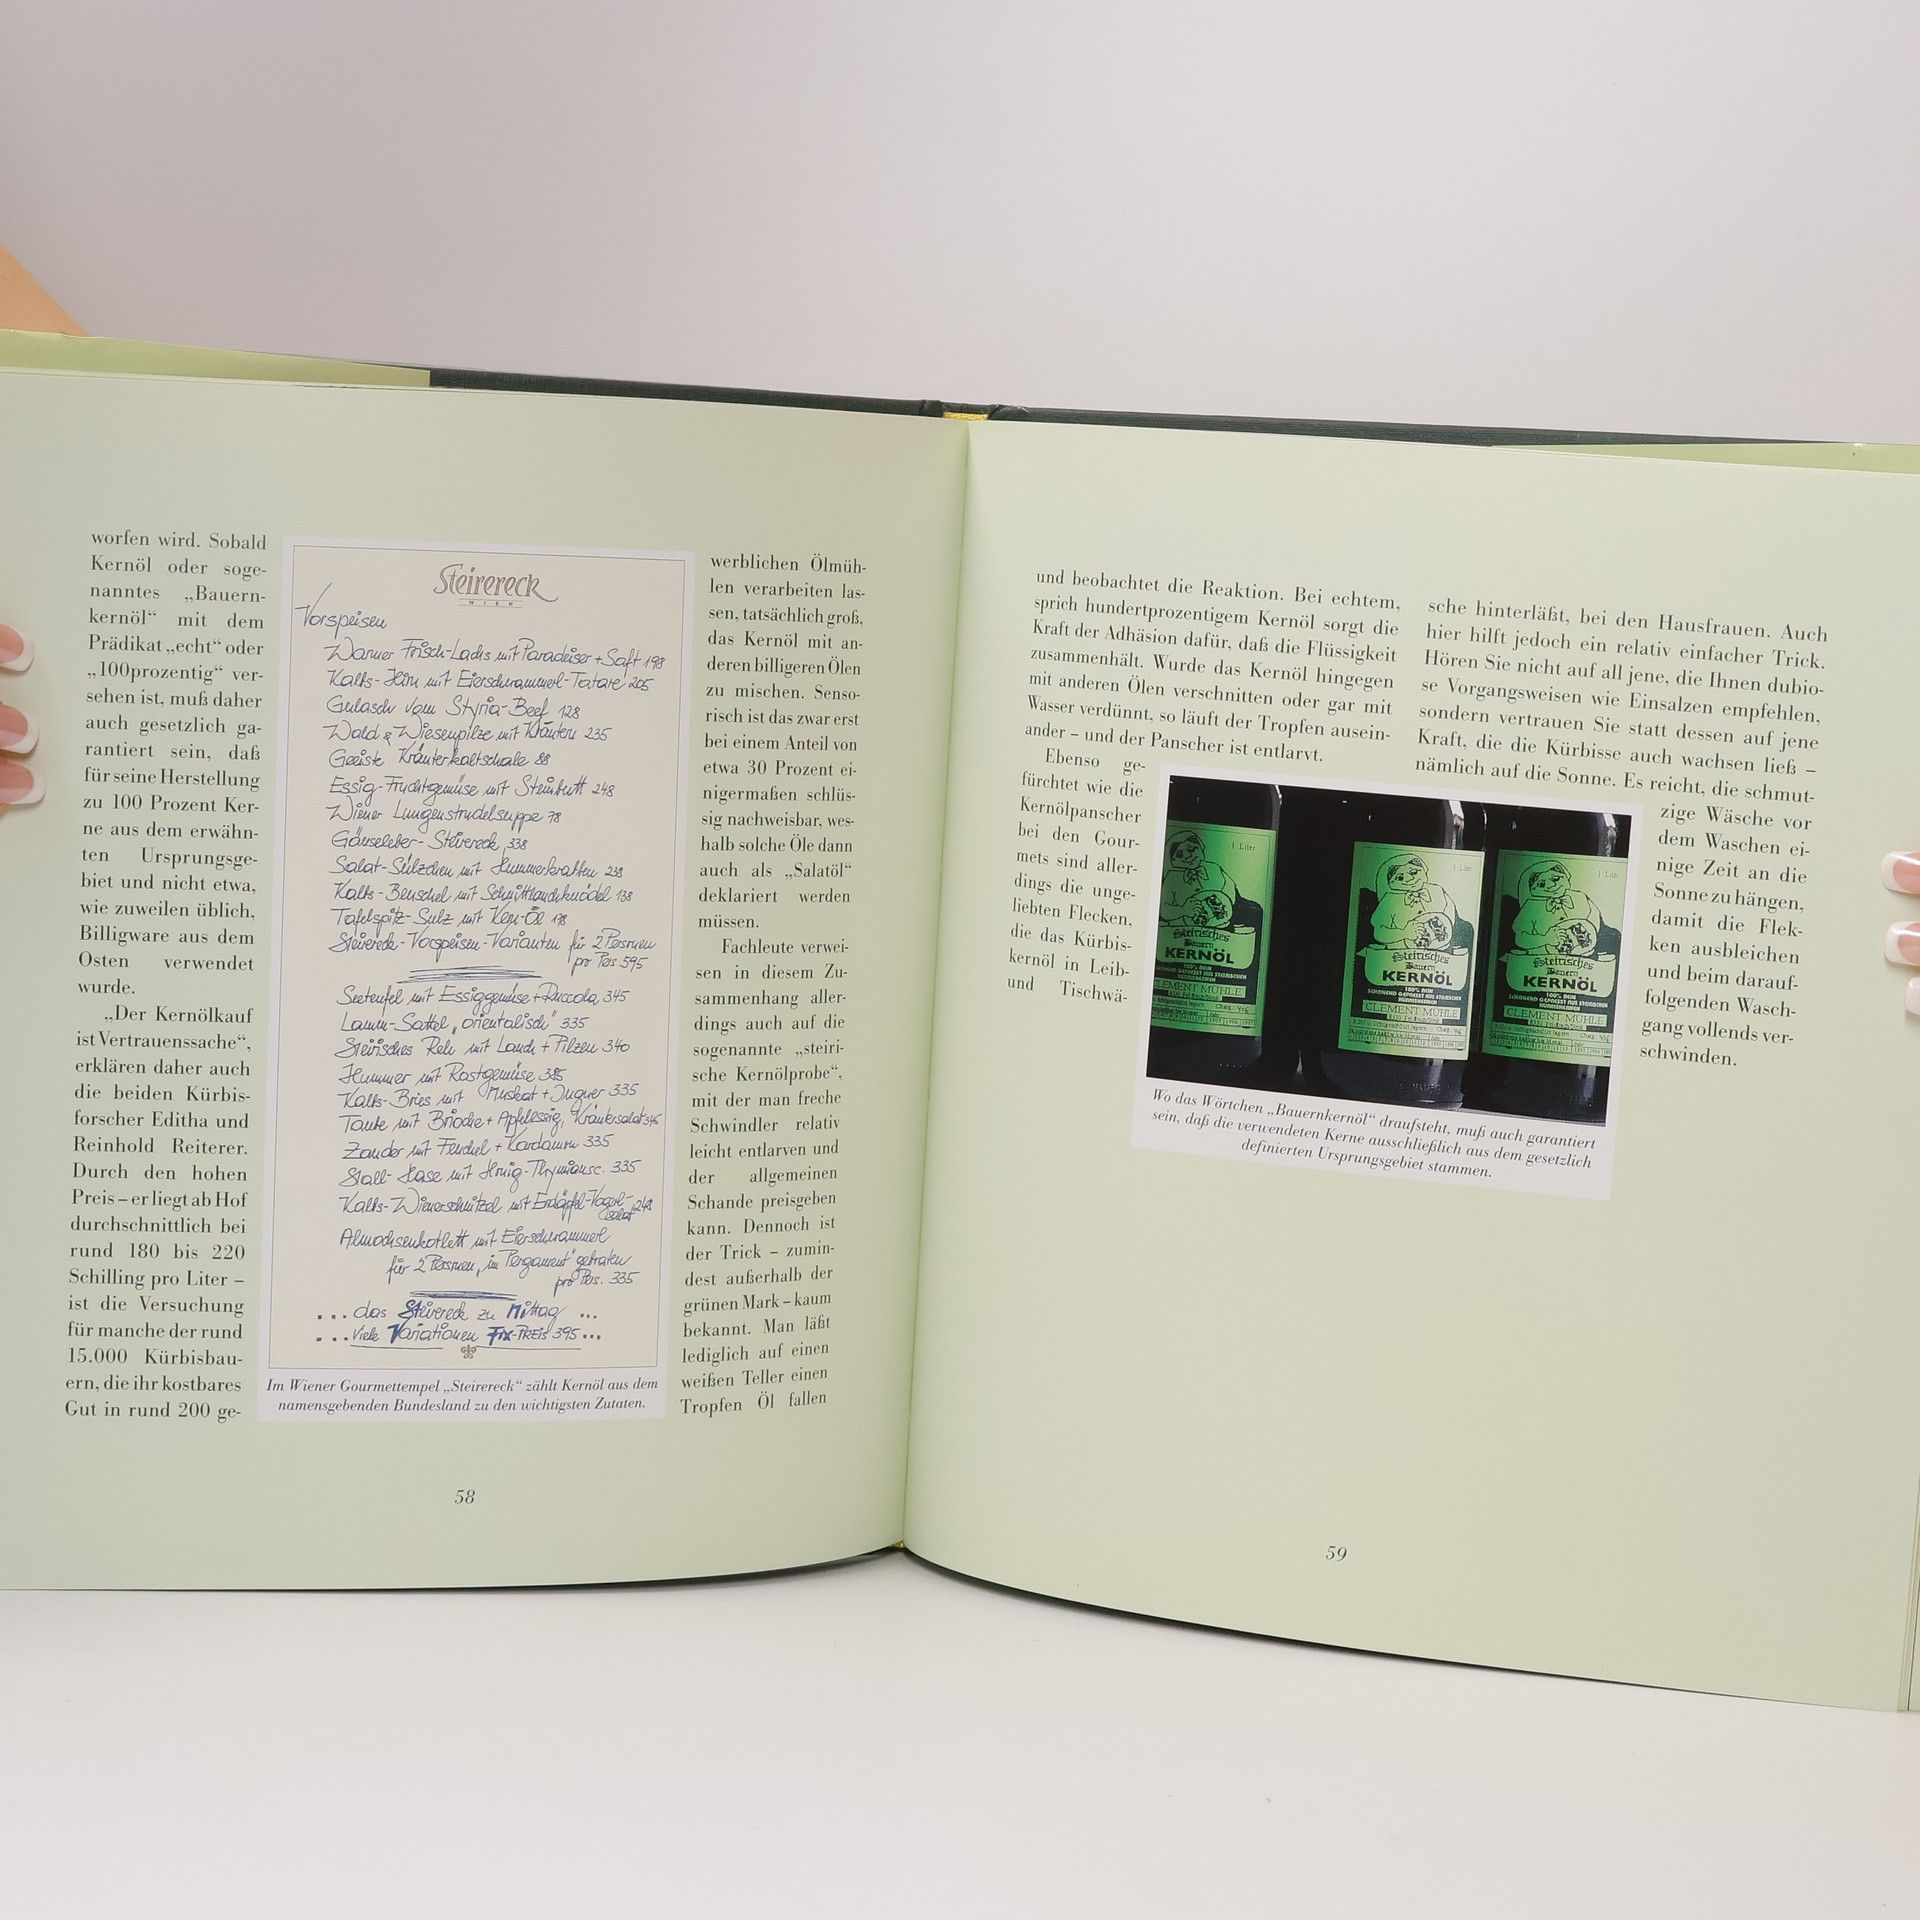 worfen wird. Sobald
Kernöl oder soge-
nanntes „Bauern-
kernöl“ mit dem
Prädikat „echt“ oder
„100prozentig“ ver-
sehen ist, muß daher
auch gesetzlich ga-
rantiert sein, daß
für seine Herstellung
zu 100 Prozent Ker-
ne aus dem erwähn-
ten Ursprungsge-
biet und nicht etwa,
wie zuweilen üblich,
Billigware aus dem
Osten verwendet
wurde.
„Der Kernölkauf
ist Vertrauenssache“,
erklären daher auch
die beiden Kürbis-
forscher Editha und
Reinhold Reiterer.
Durch den hohen
Preis – er liegt ab Hof
durchschnittlich bei
rund 180 bis 220
Schilling pro Liter –
ist die Versuchung
für manche der rund
15.000 Kürbisbau-
ern, die ihr kostbares
Gut in rund 200 ge-
Steirereck
WIEN
Vorspeisen
Warmer Frisch-Lachs mit Paradeiser + Saft 198
Kalbs-Hirn mit Eierschwammerl-Tatare 205
Gulasch vom Styria-Beef 128
Wald & Wiesenpilze mit Kräutern 235
Geeiste Kräuterkaltschale 88
Essig-Fruchtgemüse mit Steinbutt 248
Wiener Lungenstrudelsuppe 78
Gänseleber-Steirereck 338
Salat-Sülzchen mit Hummerkrabben 238
Kalbs-Beuschel mit Schnittlauchknödel 138
Tafelspitz-Sulz mit Kern-Öl 178
Steirereck-Vorspeisen-Varianten für 2 Personen
pro Pers 595
Seeteufel mit Essiggemüse + Ruccola 345
Lamm-Sattel „orientalisch“ 335
Steirisches Reh mit Lauch + Pilzen 340
Hummer mit Rostgemüse 385
Kalbs-Bries mit Muskat + Ingwer 335
Taube mit Brioche + Apfelessig, Kräutersalat 345
Zander mit Fenchel + Kardamom 335
Stall-Hase mit Honig-Thymiansc. 335
Kalbs-Wienerschnitzel mit Erdäpfel-Vogerl-
salat 248
Almochsenkotlett mit Eierschwammerl
für 2 Personen „im Pergament“ gebraten
pro Pers. 335
... das Steirereck zu Mittag ...
... viele Variationen Fix-PREIS 395 ...
Im Wiener Gourmettempel „Steirereck“ zählt Kernöl aus dem
namensgebenden Bundesland zu den wichtigsten Zutaten.
werblichen Ölmüh-
len verarbeiten las-
sen, tatsächlich groß,
das Kernöl mit an-
deren billigeren Ölen
zu mischen. Senso-
risch ist das zwar erst
bei einem Anteil von
etwa 30 Prozent ei-
nigermaßen schlüs-
sig nachweisbar, wes-
halb solche Öle dann
auch als „Salatöl“
deklariert werden
müssen.
Fachleute verwei-
sen in diesem Zu-
sammenhang aller-
dings auch auf die
sogenannte „steiri-
sche Kernölprobe“,
mit der man freche
Schwindler relativ
leicht entlarven und
der allgemeinen
Schande preisgeben
kann. Dennoch ist
der Trick – zumin-
dest außerhalb der
grünen Mark – kaum
bekannt. Man läßt
lediglich auf einen
weißen Teller einen
Tropfen Öl fallen
58
und beobachtet die Reaktion. Bei echtem,
sprich hundertprozentigem Kernöl sorgt die
Kraft der Adhäsion dafür, daß die Flüssigkeit
zusammenhält. Wurde das Kernöl hingegen
mit anderen Ölen verschnitten oder gar mit
Wasser verdünnt, so läuft der Tropfen ausein-
ander – und der Panscher ist entlarvt.
Ebenso ge-
fürchtet wie die
Kernölpanscher
bei den Gour-
mets sind aller-
dings die unge-
liebten Flecken,
die das Kürbis-
kernöl in Leib-
und Tischwä-
sche hinterläßt, bei den Hausfrauen. Auch
hier hilft jedoch ein relativ einfacher Trick.
Hören Sie nicht auf all jene, die Ihnen dubio-
se Vorgangsweisen wie Einsalzen empfehlen,
sondern vertrauen Sie statt dessen auf jene
Kraft, die die Kürbisse auch wachsen ließ –
nämlich auf die Sonne. Es reicht, die schmut-
zige Wäsche vor
dem Waschen ei-
nige Zeit an die
Sonne zu hängen,
damit die Flek-
ken ausbleichen
und beim darauf-
folgenden Wasch-
gang vollends ver-
schwinden.
1 Liter
Steirisches
Bauern
KERNÖL
100% REIN
SCHONEND GEPRESST AUS STEIRISCHEN
KÜRBISKERNEN
CLEMENT MÜHLE
1 Liter
Steirisches
Bauern
KERNÖL
100% REIN
SCHONEND GEPRESST AUS STEIRISCHEN
KÜRBISKERNEN
CLEMENT MÜHLE
1 Liter
Steirisches
Bauern
KERNÖL
100% REIN
SCHONEND GEPRESST AUS STEIRISCHEN
KÜRBISKERNEN
CLEMENT MÜHLE
Wo das Wörtchen „Bauernkernöl“ draufsteht, muß auch garantiert
sein, daß die verwendeten Kerne ausschließlich aus dem gesetzlich
definierten Ursprungsgebiet stammen.
59